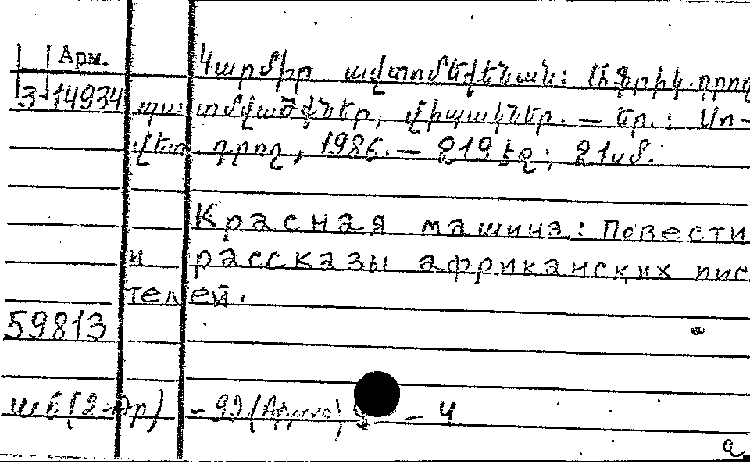 Арм.
Կարմիր ավտոմեքենան: Աֆրիկ. գրող
3-14934 պատմվածքներ, վիպակներ. — Եր.: Սո-
վետ. գրող, 1986. — 219 էջ; 21սմ.
Красная машина: Повести
и рассказы африканских пис
телей.
59813
— 4
а